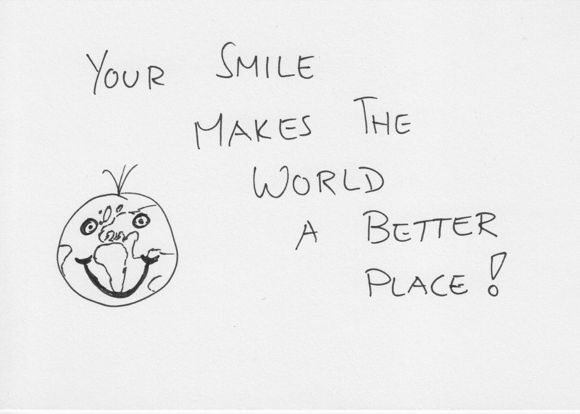 YOUR SMILE
MAKES THE
WORLD
A BETTER
PLACE!